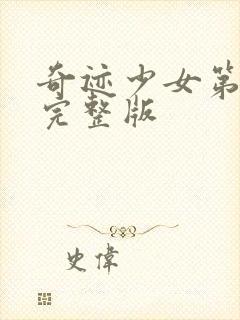 奇迹少女第
完整版
史偉